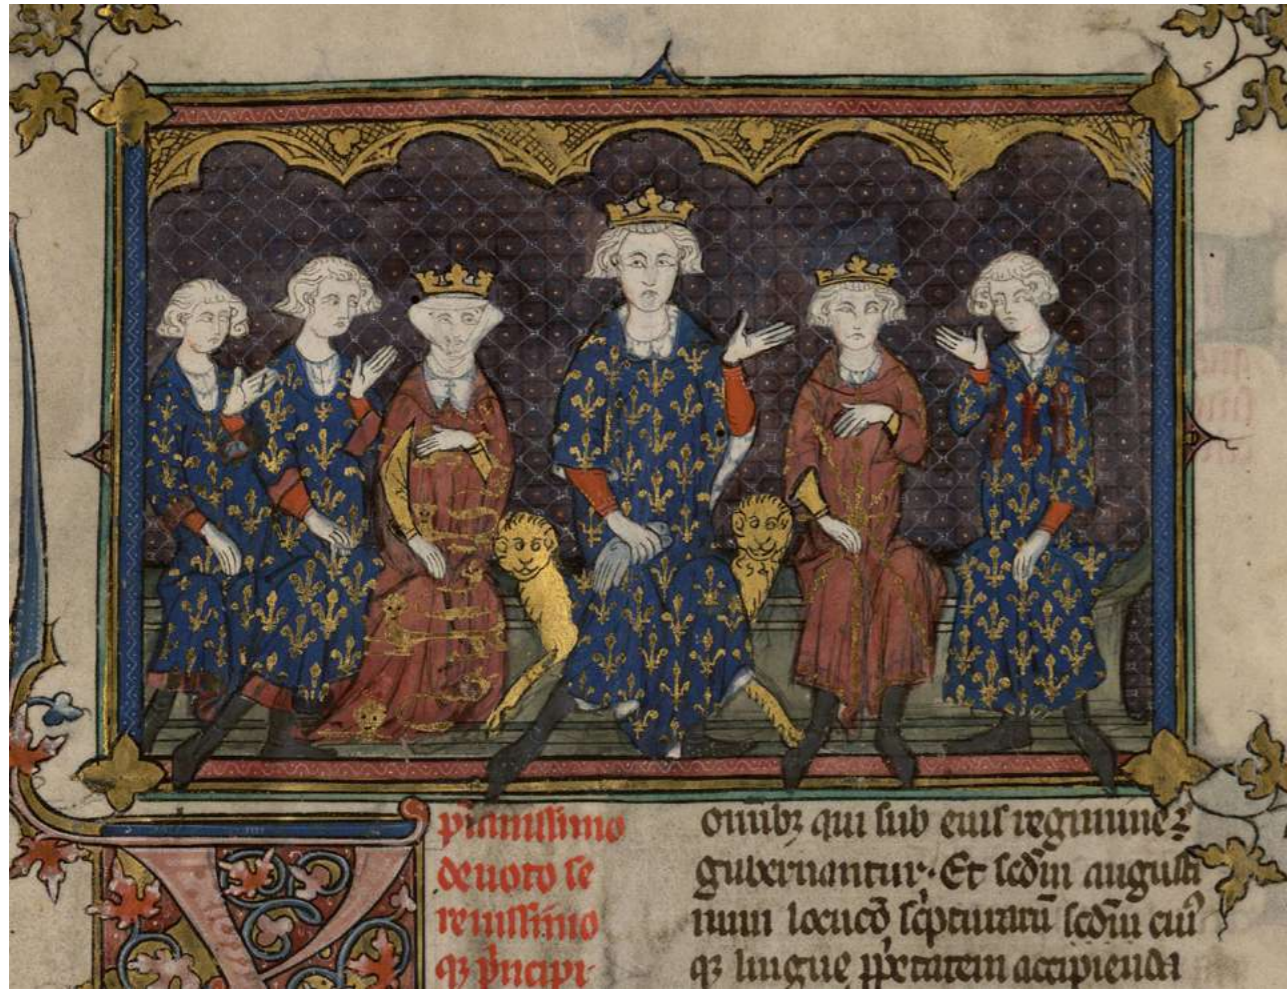 p̄ianissimo
deuoto se
renissimo
qꝫ p̄ncipi·
om̄ibꝫ qui sub eius regimine ⁊
gubernantur· Et scd̄m augusti
num locucō sc̄pturarū scd̄m cuiꝰ
qꝫ lingue ꝓp̄etatem accipienda